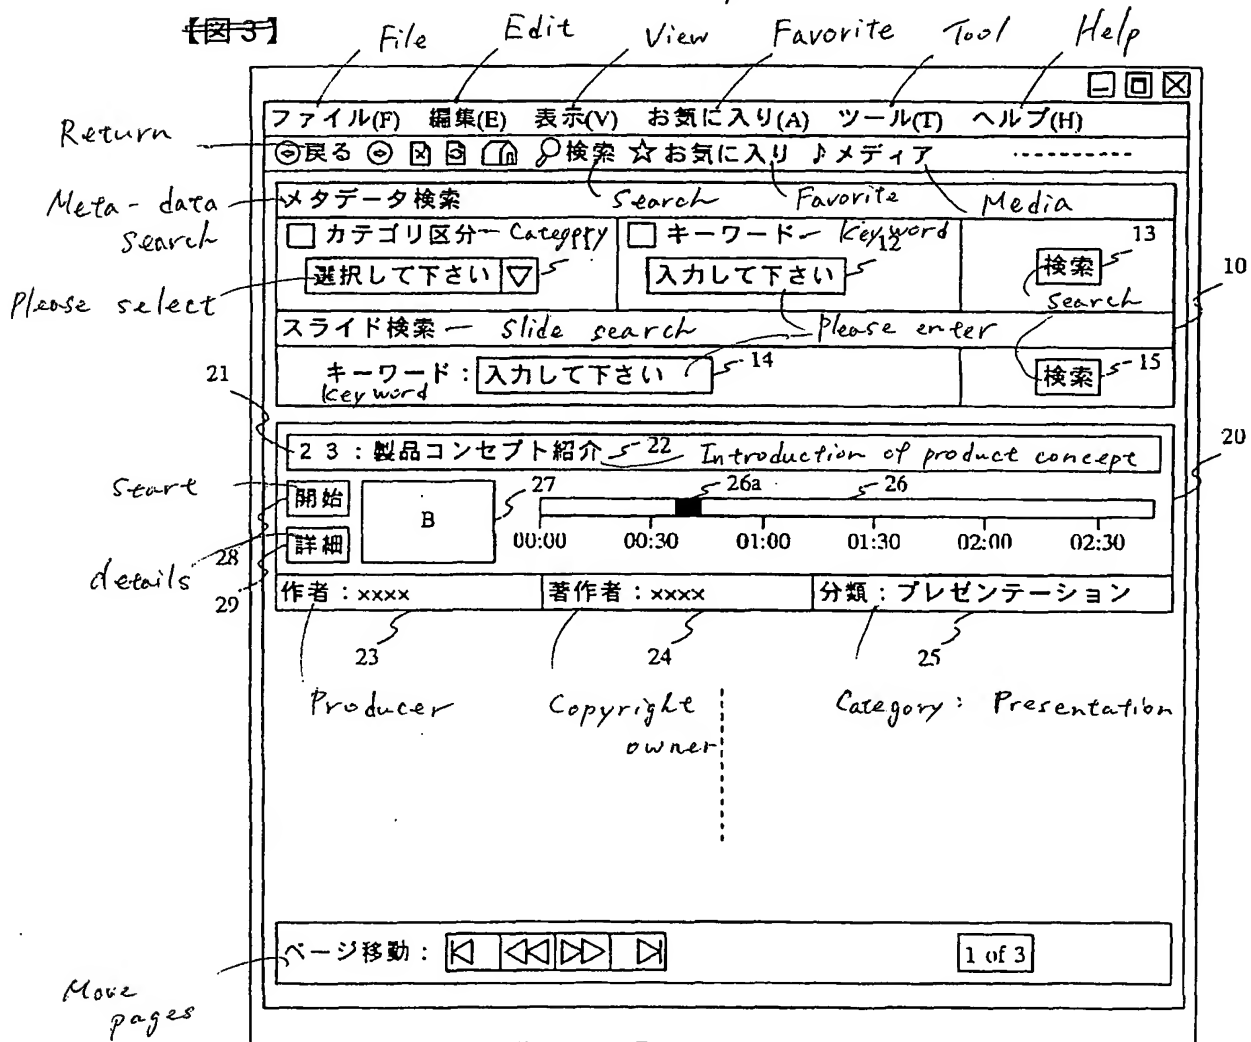 【図3】
File Edit View Favorite Tool Help
ファイル(F) 編集(E) 表示(V) お気に入り(A) ツール(T) ヘルプ(H)
Return
戻る 検索 ☆お気に入り ♪メディア
Meta-data search
メタデータ検索 Search Favorite Media
カテゴリ区分 Category キーワード keyword 12 13
Please select
選択して下さい 入力して下さい 検索 10
Search
スライド検索 Slide search Please enter
21 キーワード: 入力して下さい 14 検索 15
keyword
23:製品コンセプト紹介 22 Introduction of product concept 20
Start
開始 B 27 26a 26
詳細 00:00 00:30 01:00 01:30 02:00 02:30
28
details
29
作者:xxxx 著作者:xxxx 分類:プレゼンテーション
23 24 25
Producer Copyright owner Category: Presentation
ページ移動: 1 of 3
Move pages